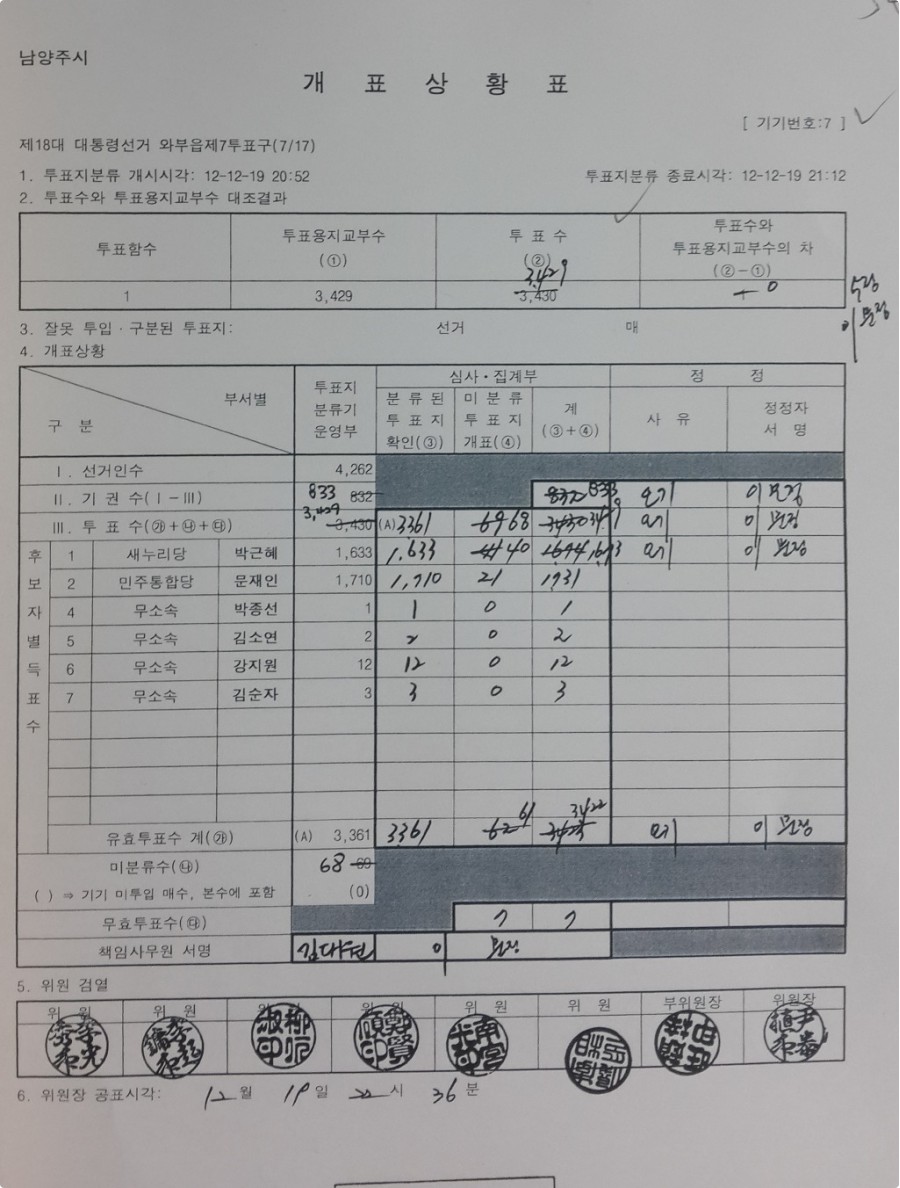 남양주시
개 표 상 황 표
[ 기기번호:7 ]
제18대 대통령선거 와부읍제7투표구(7/17)
1. 투표지분류 개시시각: 12-12-19 20:52 투표지분류 종료시각: 12-12-19 21:12
2. 투표수와 투표용지교부수 대조결과
투표함수 투표용지교부수 (①) 투 표 수 (②) 투표수와 투표용지교부수의 차 (②-①)
3,429 0
1 3,429 3,430
3. 잘못 투입·구분된 투표지: 선거 매
4. 개표상황
구 분 부서별 투표지 분류기 운영부 심사·집계부 정 정
분 류 된 투 표 지 확인(③) 미 분 류 투 표 지 개표(④) 계 (③+④) 사 유 정정자 서 명
Ⅰ. 선거인수 4,262
Ⅱ. 기 권 수(Ⅰ-Ⅲ) 833 832 832 833 오기
Ⅲ. 투 표 수(㉮+㉯+㉰) 3,429 3,430 (A) 3361 69 68 3430 오기
후보자별득표수
1 새누리당 박근혜 1,633 1,633 41 40 1674 1,673 오기
2 민주통합당 문재인 1,710 1,710 21 1731
4 무소속 박종선 1 1 0 1
5 무소속 김소연 2 2 0 2
6 무소속 강지원 12 12 0 12
7 무소속 김순자 3 3 0 3
유효투표수 계(㉮) (A) 3,361 3361 62 61 3423 3422 오기
미분류수(㉯) 68 69
( ) ⇒ 기기 미투입 매수, 본수에 포함 (0)
무효투표수(㉰) 7 7
책임사무원 서명
5. 위원 검열
위 원 위 원 위 원 위 원 위 원 위 원 부위원장 위원장
6. 위원장 공표시각: 12 월 19 일 22 시 36 분